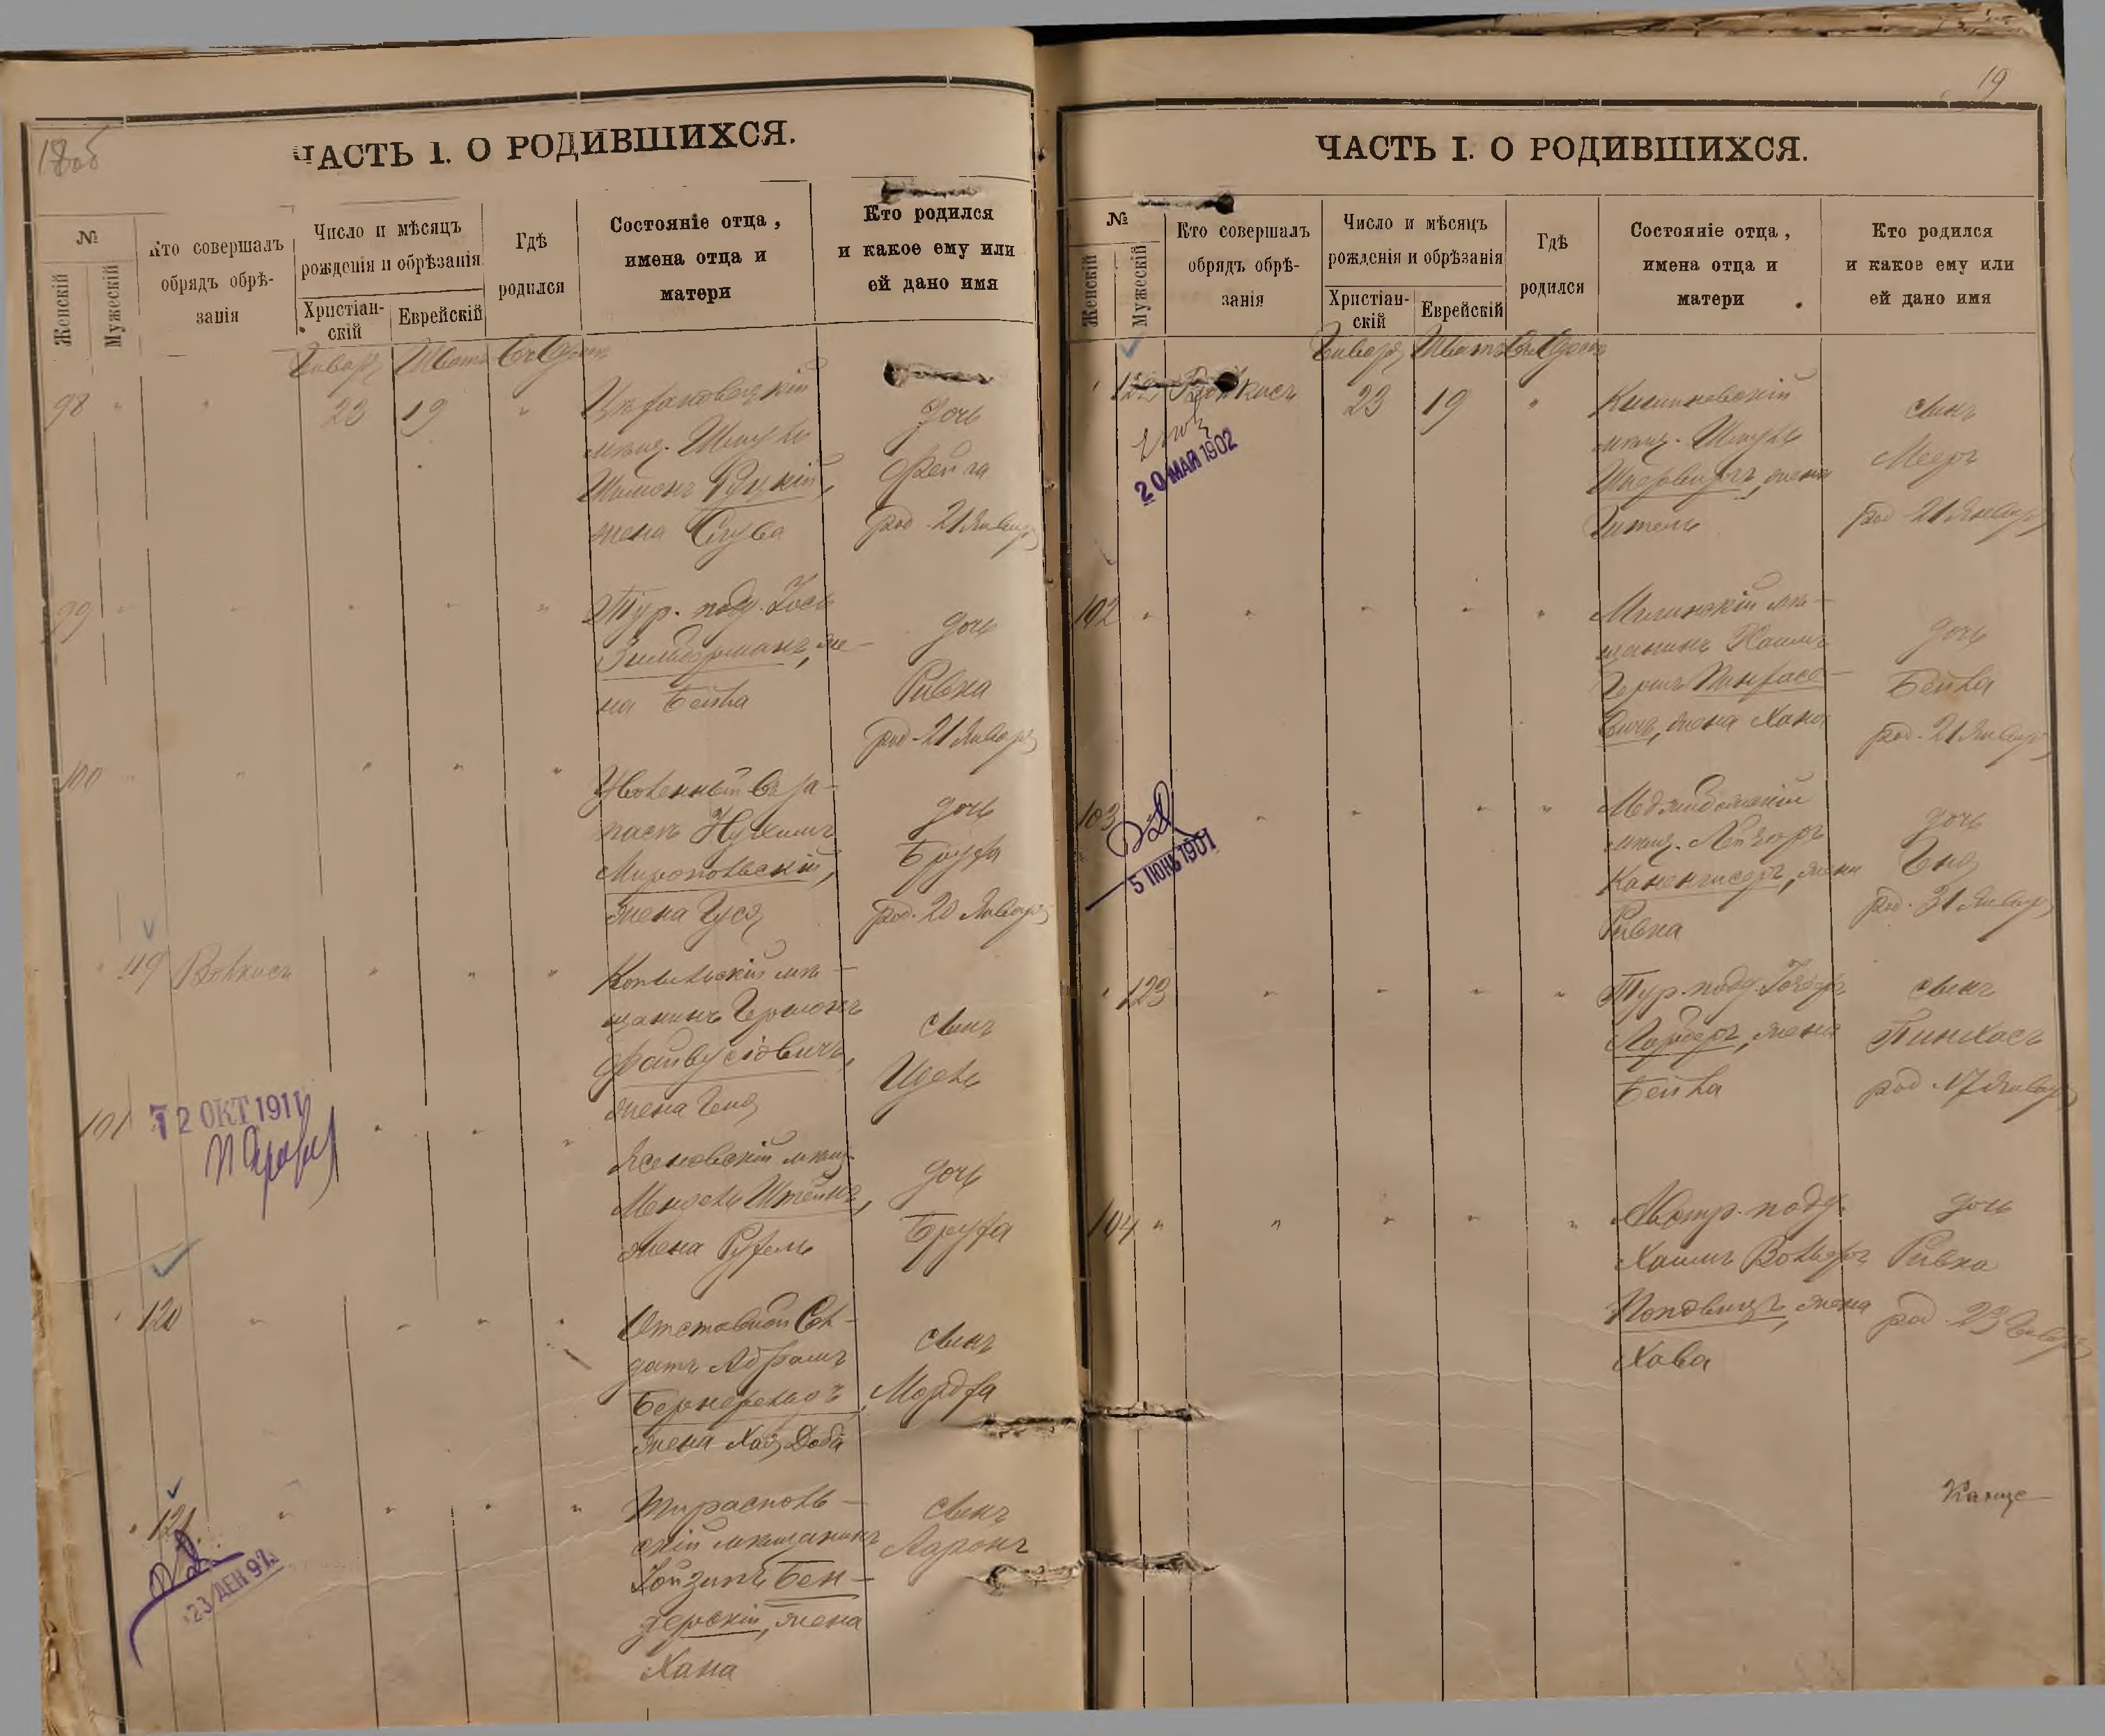 18об
ЧАСТЬ I. О РОДИВШИХСЯ.
№
Женскій
Мужескій
Кто совершалъ
обрядъ обрѣ-
занія
Число и мѣсяцъ
рожденія и обрѣзанія
Христіан-
скій
Еврейскій
Гдѣ
родился
Состояніе отца,
имена отца и
матери
Кто родился
и какое ему или
ей дано имя
Январ Шват
98 " " 23 19 "
мѣщ. Шмуль
Шоломъ Руцкій,
жена Слува
дочь
Фейга
род. 21 Января
99 " " " " "
Тур. подд. Іось
Зильберманъ, же-
на Бейла
дочь
Ривка
род. 21 Января
100 " " " " "
Уволенный въ за-
пасъ Нухимъ
Миропольскій,
жена Гуся
дочь
Бруха
род. 20 Января
" 119 Волкисъ " " "
Копыльскій мѣ-
щанинъ Гершонъ
жена Геня
сынъ
Идель
101
12 ОКТ 1911
Ясеновскій мѣщ.
Мендель Штейнъ,
жена Рухель
дочь
Бруха
" 120 " " " "
Отставной Сол-
датъ Абрамъ
жена Хая Доба
сынъ
Мордха
" 121 " " " "
23 ДЕК 97
Тирасполь-
скій мѣщанинъ
Бен-
дерскій, жена
Хана
сынъ
Ааронъ
19
ЧАСТЬ I. О РОДИВШИХСЯ.
№
Женскій
Мужескій
Кто совершалъ
обрядъ обрѣ-
занія
Число и мѣсяцъ
рожденія и обрѣзанія
Христіан-
скій
Еврейскій
Гдѣ
родился
Состояніе отца,
имена отца и
матери
Кто родился
и какое ему или
ей дано имя
Января Шват
" 122 Волкисъ 23 19 "
20 МАЙ 1902
Кишиневскій
мѣщ. Шмуль
жена
Гитель
сынъ
Мееръ
род. 21 Января
102 " " " " "
мѣ-
щанинъ Хаимъ
Гершъ Пинхасо-
вичъ, жена Хана
дочь
Бейла
род. 21 Января
103 " " " "
5 ИЮНЬ 1901
Меджибожскій
мѣщ. Лейзоръ
Каненгисеръ, жена
Ривка
дочь
Геня
род. 31 Января
" 123 " " " "
Тур. подд. Іосефъ
жена
Бейла
сынъ
Пинхасъ
род. 17 Января
104 " " " " "
Австр. подд.
Хаимъ Вольфъ
жена
Хова
дочь
Ривка
род. 23 Января
Канце-